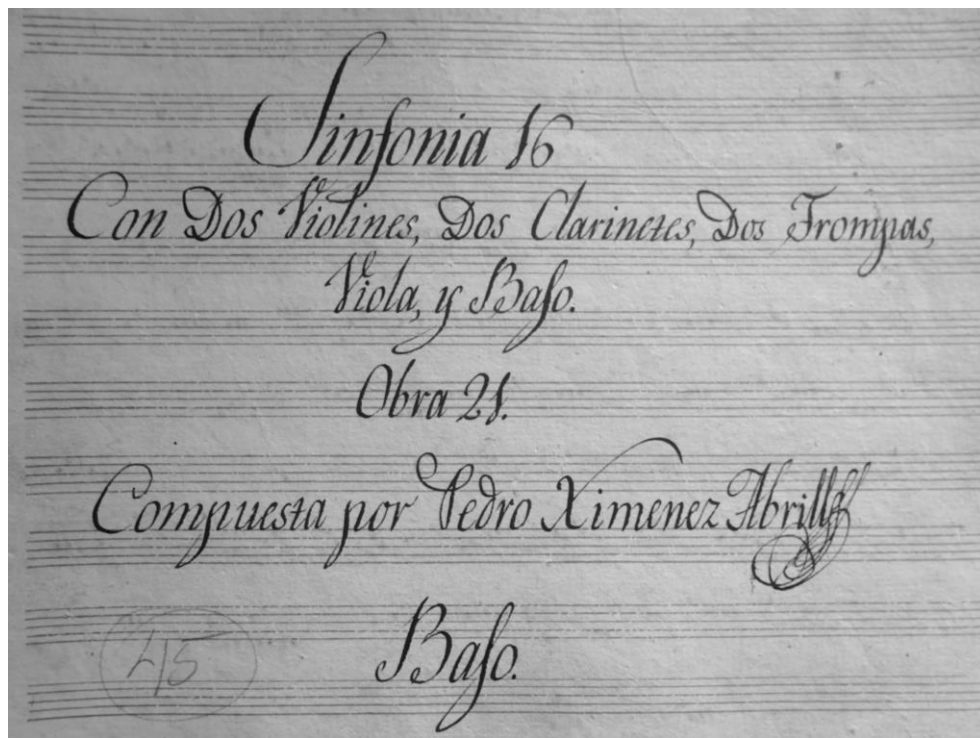 Sinfonia 16
Con Dos Violines, Dos Clarinetes, Dos Trompas,
Viola, y Baſo.
Obra 21.
Compuesta por Pedro Ximenez Abrill
Baſo.
45